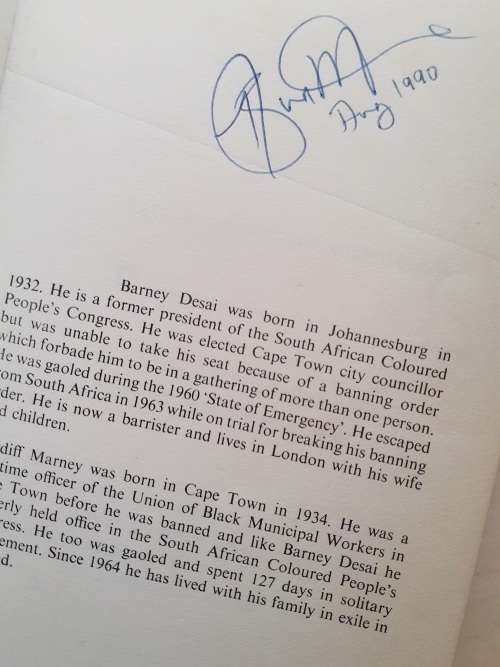 Aug 1990
Barney Desai was born in Johannesburg in
1932. He is a former president of the South African Coloured
People's Congress. He was elected Cape Town city councillor
but was unable to take his seat because of a banning order
which forbade him to be in a gathering of more than one person.
He was gaoled during the 1960 'State of Emergency'. He escaped
from South Africa in 1963 while on trial for breaking his banning
order. He is now a barrister and lives in London with his wife
children.
diff Marney was born in Cape Town in 1934. He was a
time officer of the Union of Black Municipal Workers in
Town before he was banned and like Barney Desai he
erly held office in the South African Coloured People's
ress. He too was gaoled and spent 127 days in solitary
ement. Since 1964 he has lived with his family in exile in
d.